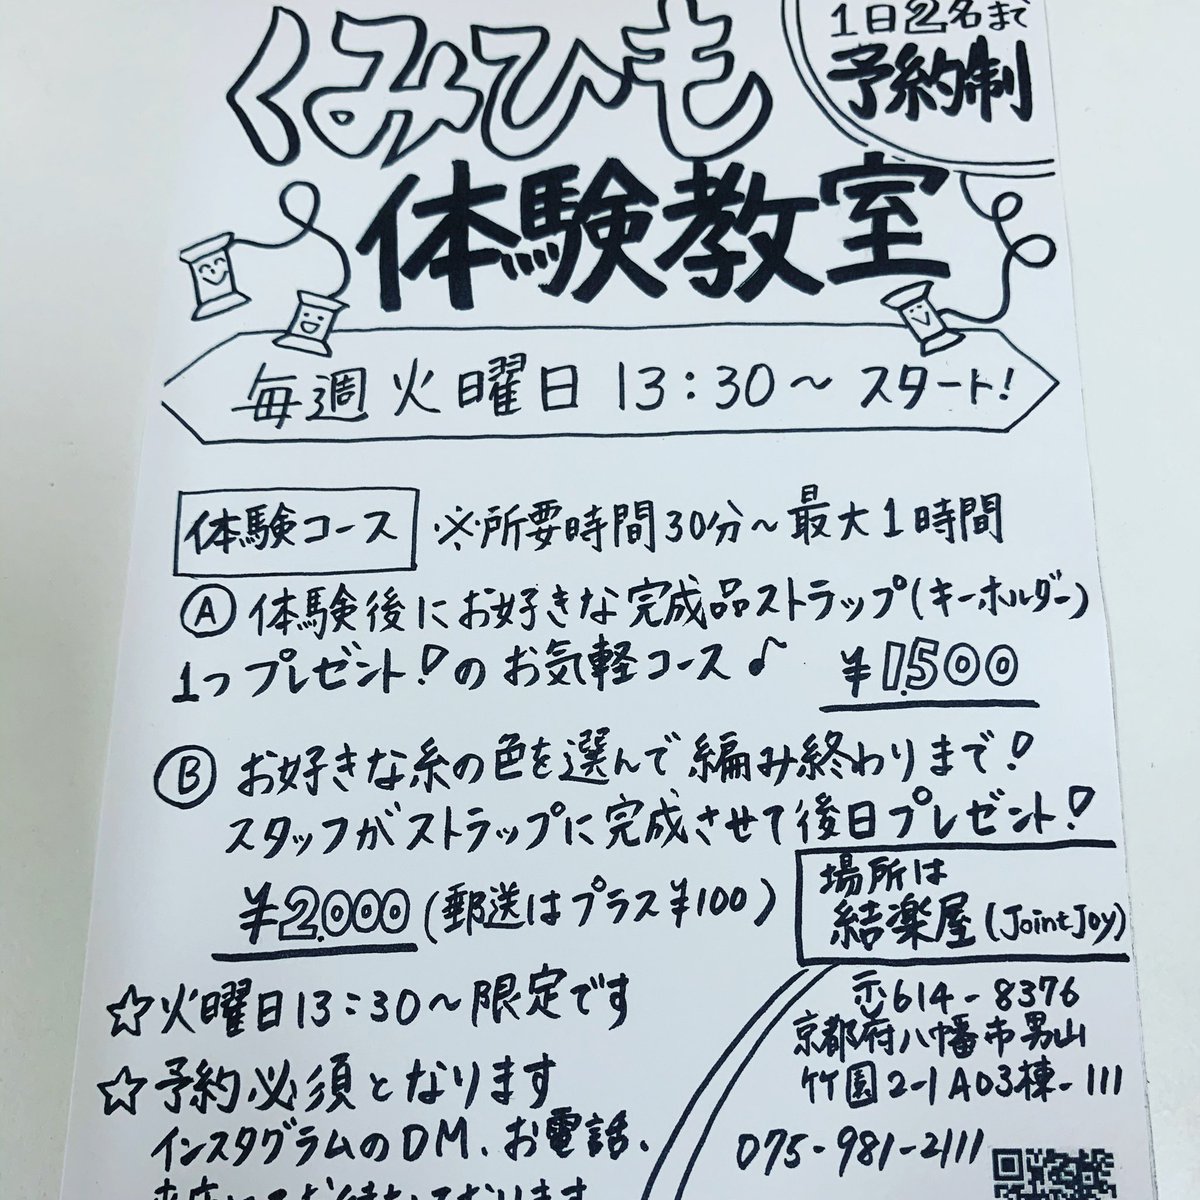 くみひも
1日2名まで
予約制
体験教室
毎週火曜日13:30〜スタート!
体験コース ※所要時間30分〜最大1時間
Ⓐ体験後にお好きな完成品ストラップ(キーホルダー)
1つプレゼント!のお気軽コース♪ ¥1,500
Ⓑお好きな糸の色を選んで編み終わりまで!
スタッフがストラップに完成させて後日プレゼント!
¥2,000(郵送はプラス¥100)
場所は
結楽屋(Joint Joy)
☆火曜日13:30〜限定です
☆予約必須となります
インスタグラムのDM、お電話、
〒614-8376
京都府八幡市男山
竹園2-1A03棟-111
075-981-2111